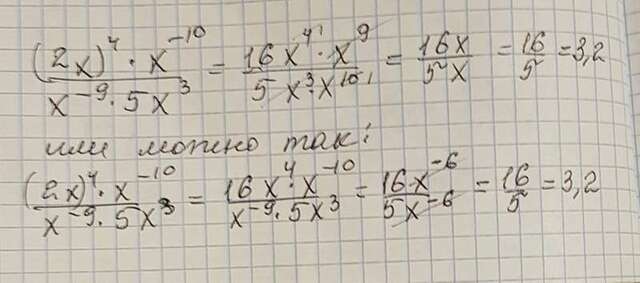 (2x)⁴ · x⁻¹⁰ / x⁻⁹ · 5x³ = 16x⁴ · x⁹ / 5x³ · x¹⁰ = 16x / 5x = 16/5 = 3,2
или можно так:
(2x)⁴ · x⁻¹⁰ / x⁻⁹ · 5x³ = 16x⁴ · x⁻¹⁰ / x⁻⁹ · 5x³ = 16x⁻⁶ / 5x⁻⁶ = 16/5 = 3,2